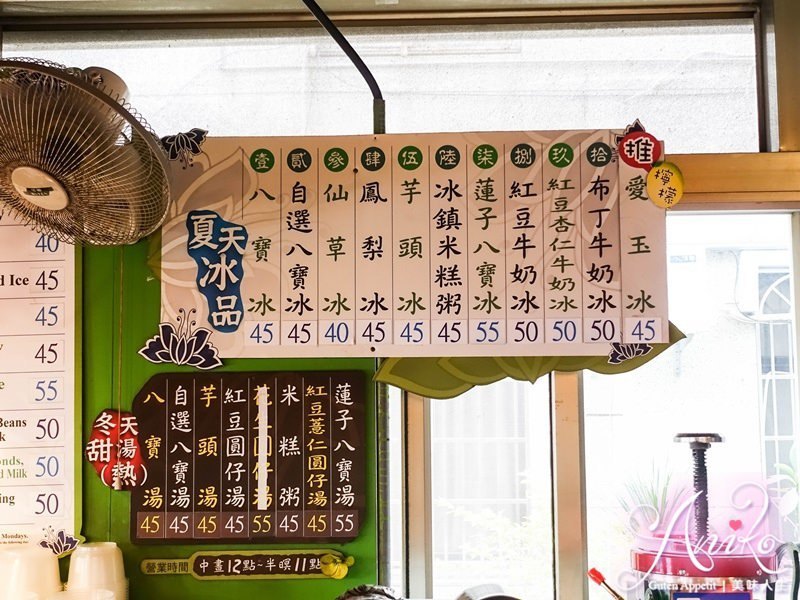 夏天冰品
壹 八寶冰 45
貳 自選八寶冰 45
參 仙草冰 40
肆 鳳梨冰 45
伍 芋頭冰 45
陸 冰鎮米糕粥 45
柒 蓮子八寶冰 55
捌 紅豆牛奶冰 50
玖 紅豆杏仁牛奶冰 50
拾 布丁牛奶冰 50
推 檸檬 愛玉冰 45
冬天甜湯(熱)
八寶湯 45
自選八寶湯 45
芋頭湯 45
紅豆圓仔湯 45
花生圓仔湯 55
米糕粥 45
紅豆薏仁圓仔湯 45
蓮子八寶湯 55
營業時間 中晝12點~半暝11點
40
Ice 45
45
45
55
Beans 50
50
and Milk
50
Mondays.
Anko
Guten Appetit | 美味人生